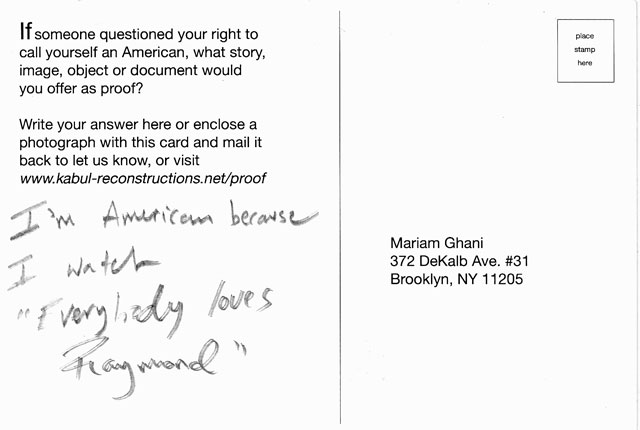 If someone questioned your right to
call yourself an American, what story,
image, object or document would
you offer as proof?
Write your answer here or enclose a
photograph with this card and mail it
back to let us know, or visit
www.kabul-reconstructions.net/proof
I'm American because
I watch
"Everybody loves
Raymond"
place
stamp
here
Mariam Ghani
372 DeKalb Ave. #31
Brooklyn, NY 11205